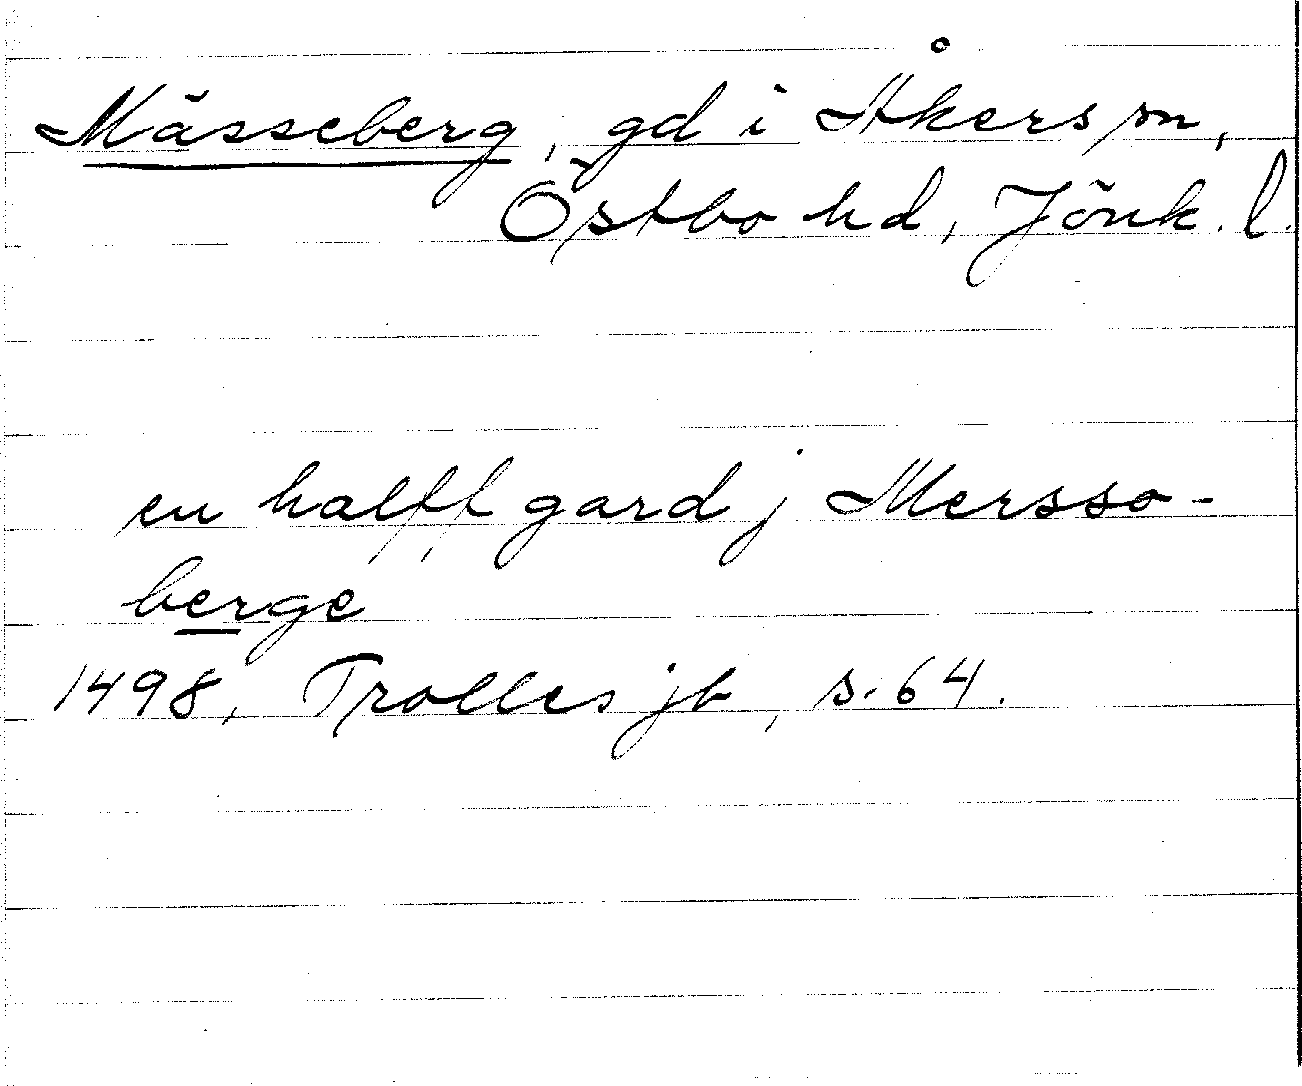 Mässeberg, gd i Åkers sn,
Östbo hd, Jönk. l.
en halff gard j Mersso-
berge
1498, Trolles jb, s. 64.